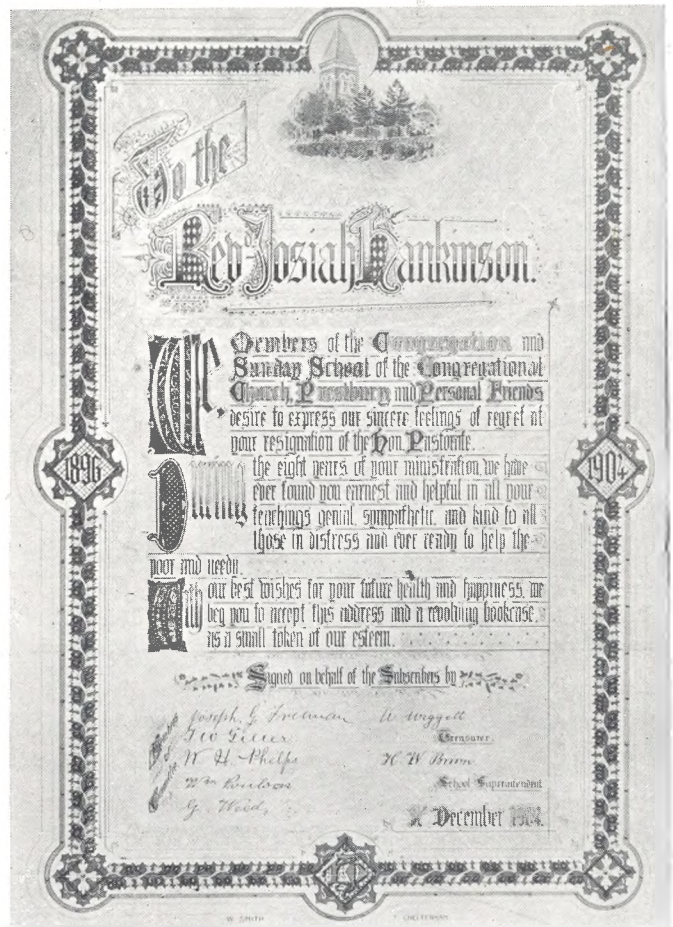 To the
Revd. Josiah Hankinson.
We, Members of the Congregation and
Sunday School of the Congregational
Church, Prestbury and Personal Friends
desire to express our sincere feelings of regret at
your resignation of the Hon. Pastorate.
During the eight years of your ministration, we have
ever found you earnest and helpful in all your
teachings genial, sympathetic, and kind to all
those in distress and ever ready to help the
poor and needy.
With our best wishes for your future health and happiness, we
beg you to accept this address and a revolving bookcase,
as a small token of our esteem.
1896
1904
Signed on behalf of the Subscribers by
Joseph G. Freeman
W. H. Phelps
G.
W Wiggett
Treasurer.
H. W. Brown
School Superintendent
December 1904.
W. SMITH
CHELTENHAM